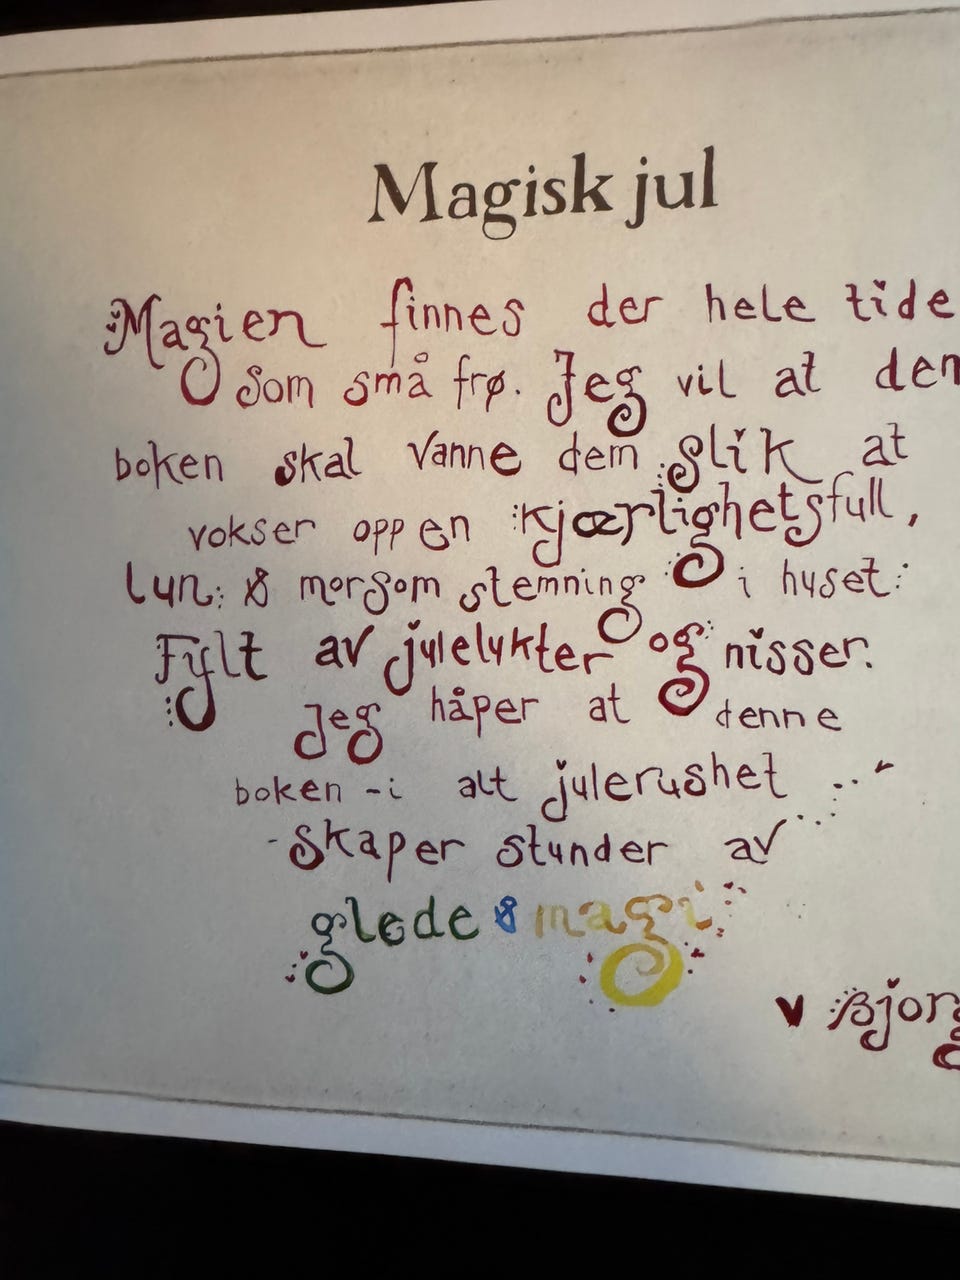 Magisk jul
Magien finnes der hele tide
som små frø. Jeg vil at den
boken skal vanne dem slik at
vokser opp en kjærlighetsfull,
lun & morsom stemning i huset.
Fylt av julelykter og nisser.
Jeg håper at denne
boken - i alt julerushet
- skaper stunder av
glede & magi
♥ Bjorg